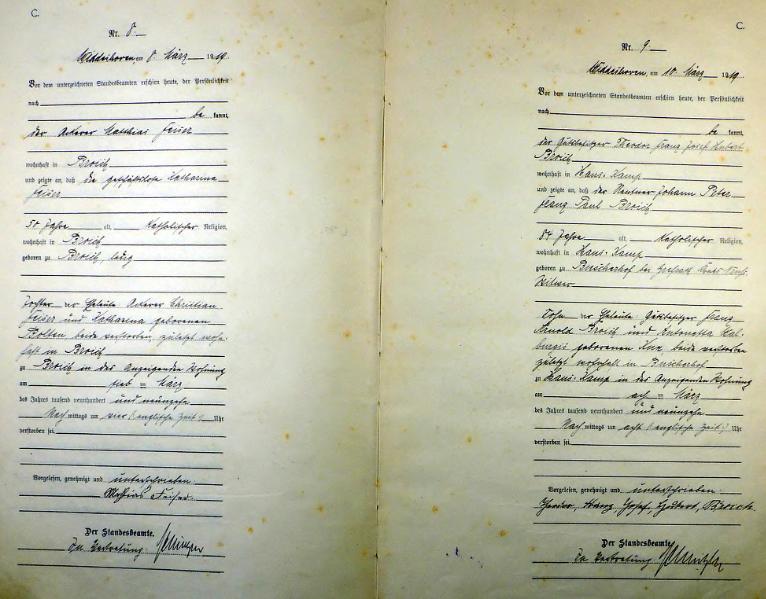 C.
Nr. 8
am 8. März 1919
Vor dem unterzeichneten Standesbeamten erschien heute, der Persönlichkeit
nach
be kannt,
der Ackerer Matthias
wohnhaft in Broich
und zeigte an, daß die geschäftslose Katharina
50 Jahre alt, Katholischer Religion,
wohnhaft in Broich
geboren zu Broich,
Tochter der Eheleute Ackerer Christian
und Katharina geborenen
beide verstorben, zuletzt wohn-
haft in Broich
zu Broich in des Anzeigenden Wohnung
am März
des Jahres tausend neunhundert und neunzehn
Nach mittags um vier (englische Zeit) Uhr
verstorben sei.
Vorgelesen, genehmigt und unterschrieben.
Mathias
Der Standesbeamte.
In Vertretung
C.
Nr. 9
am 10. März 1919
Vor dem unterzeichneten Standesbeamten erschien heute, der Persönlichkeit
nach
be kannt,
der Gutsbesitzer Theodor Franz Josef Hubert
Broich
wohnhaft in Haus Kamp
und zeigte an, daß der Rentner Johann Peter
Franz Paul Broich
84 Jahre alt, Katholischer Religion,
wohnhaft in Haus Kamp
geboren zu
Sohn der Eheleute Gutsbesitzer Franz
Arnold Broich und Antonetta Wal-
burgis geborenen beide verstorben
zuletzt wohnhaft in
zu Haus Kamp in des Anzeigenden Wohnung
am März
des Jahres tausend neunhundert und neunzehn
Nach mittags um acht (englische Zeit) Uhr
verstorben sei.
Vorgelesen, genehmigt und unterschrieben.
Theodor, Franz, Josef, Hubert, Broich
Der Standesbeamte.
In Vertretung